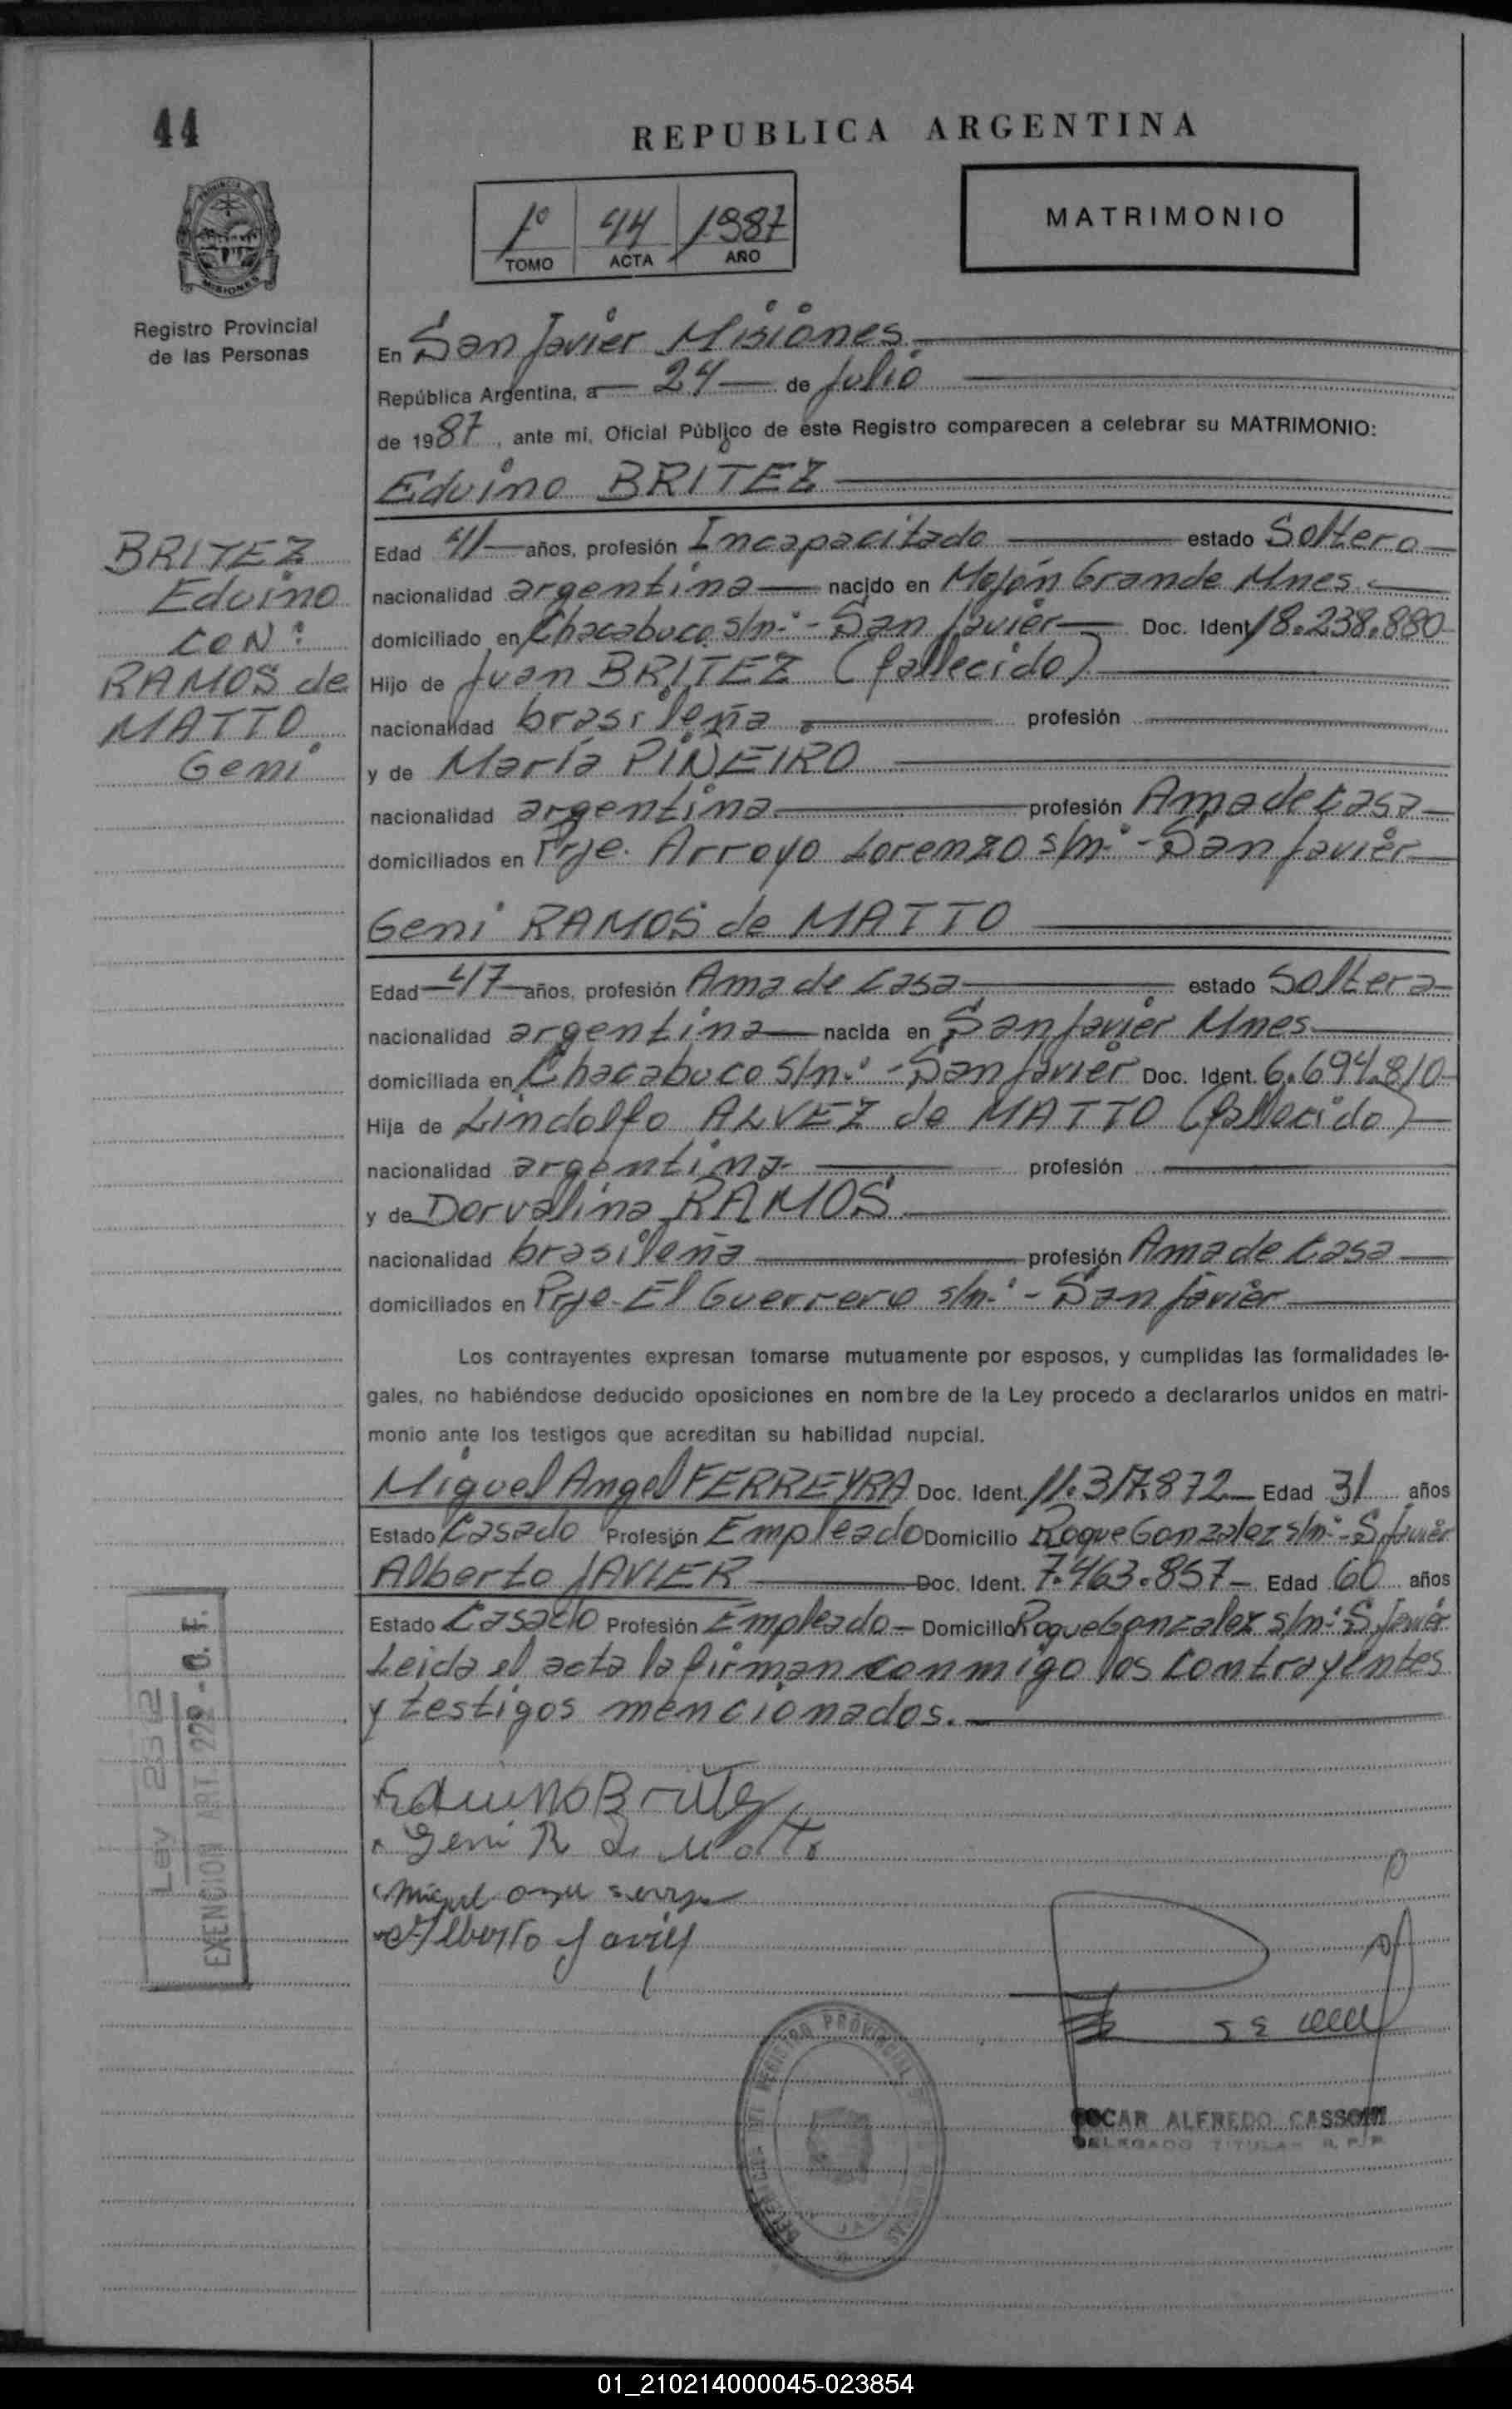 44
REPUBLICA ARGENTINA
1º 44 1987
TOMO ACTA AÑO
MATRIMONIO
PROVINCIA DE
MISIONES
Registro Provincial
de las Personas
En San Javier Misiones.
República Argentina, a 24 de Julio
de 1987, ante mi, Oficial Público de este Registro comparecen a celebrar su MATRIMONIO:
Eduino BRITEZ
BRITEZ
Eduino
CON:
RAMOS de
MATTO
Geni
Edad 41 años, profesión Incapacitado estado Soltero
nacionalidad argentina nacido en Mojón Grande Mnes.
domiciliado en Chacabuco s/n.º - San Javier Doc. Ident. 18.238.880
Hijo de Juan BRITEZ (fallecido)
nacionalidad brasileña profesión
y de María PIÑEIRO
nacionalidad argentina profesión Ama de Casa
domiciliados en Prje. Arroyo Lorenzo s/n.º - San Javier
Geni RAMOS de MATTO
Edad 47 años, profesión Ama de Casa estado Soltera
nacionalidad argentina nacida en San Javier Mnes.
domiciliada en Chacabuco s/n.º - San Javier Doc. Ident. 6.694.810
Hija de Lindolfo ALVEZ de MATTO (fallecido)
nacionalidad argentina profesión
y de Dorvalina RAMOS
nacionalidad brasileña profesión Ama de Casa
domiciliados en Prje. El Guerrero s/n.º - San Javier
Los contrayentes expresan tomarse mutuamente por esposos, y cumplidas las formalidades le-
gales, no habiéndose deducido oposiciones en nombre de la Ley procedo a declararlos unidos en matri-
monio ante los testigos que acreditan su habilidad nupcial.
Miguel Angel FERREYRA Doc. Ident. 11.317.872 Edad 31 años
Estado Casado Profesión Empleado Domicilio Roque Gonzalez s/n.º - S. Javier
Alberto JAVIER Doc. Ident. 7.463.857 Edad 60 años
Estado Casado Profesión Empleado Domicilio Roque Gonzalez s/n.º S. Javier
Leida el acta la firman conmigo los contrayentes
y testigos mencionados.
Ley 2312
EXENCION ART. 229 - C. F.
Eduino Britez
Geni R de Matto
Miguel
Alberto Javier
REGISTRO PROVINCIAL
OSCAR ALFREDO CASSONI
DELEGADO TITULAR R.P.P.
01_210214000045-023854